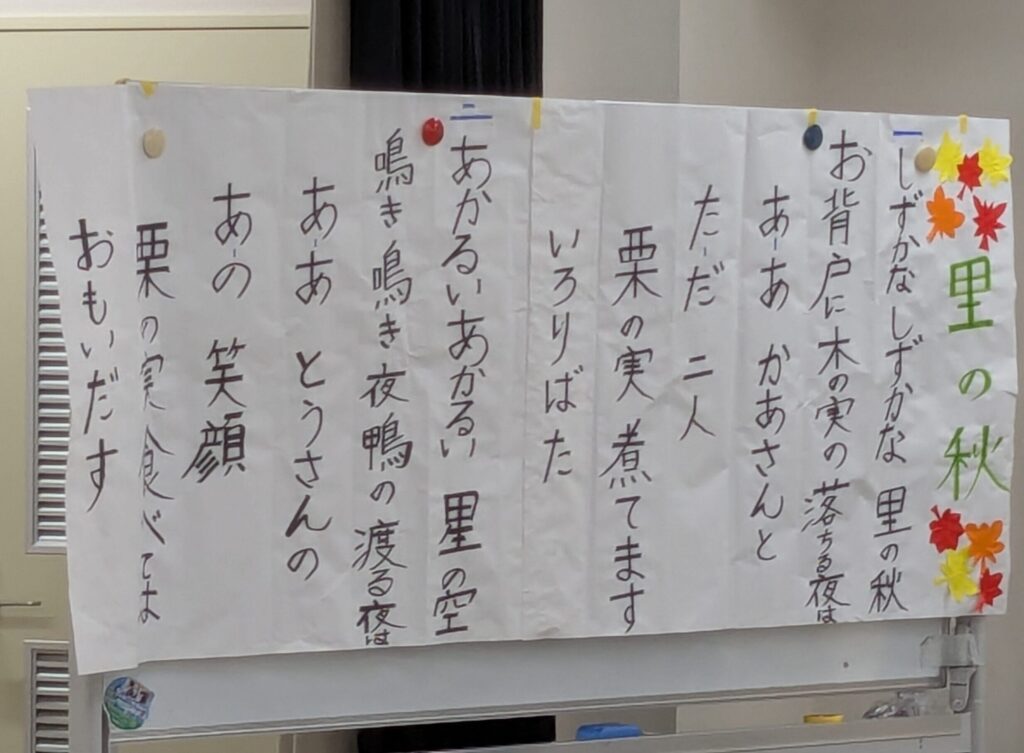 里の秋
一
しずかなしずかな 里の秋
お背戸に木の実の落ちる夜は
あーあ かあさんと
たーだ 二人
栗の実 煮てます
いろりばた
二
あかるいあかるい 星の空
鳴き鳴き夜鴨の渡る夜は
あーあ とうさんの
あーの 笑顔
栗の実 食べては
おもいだす